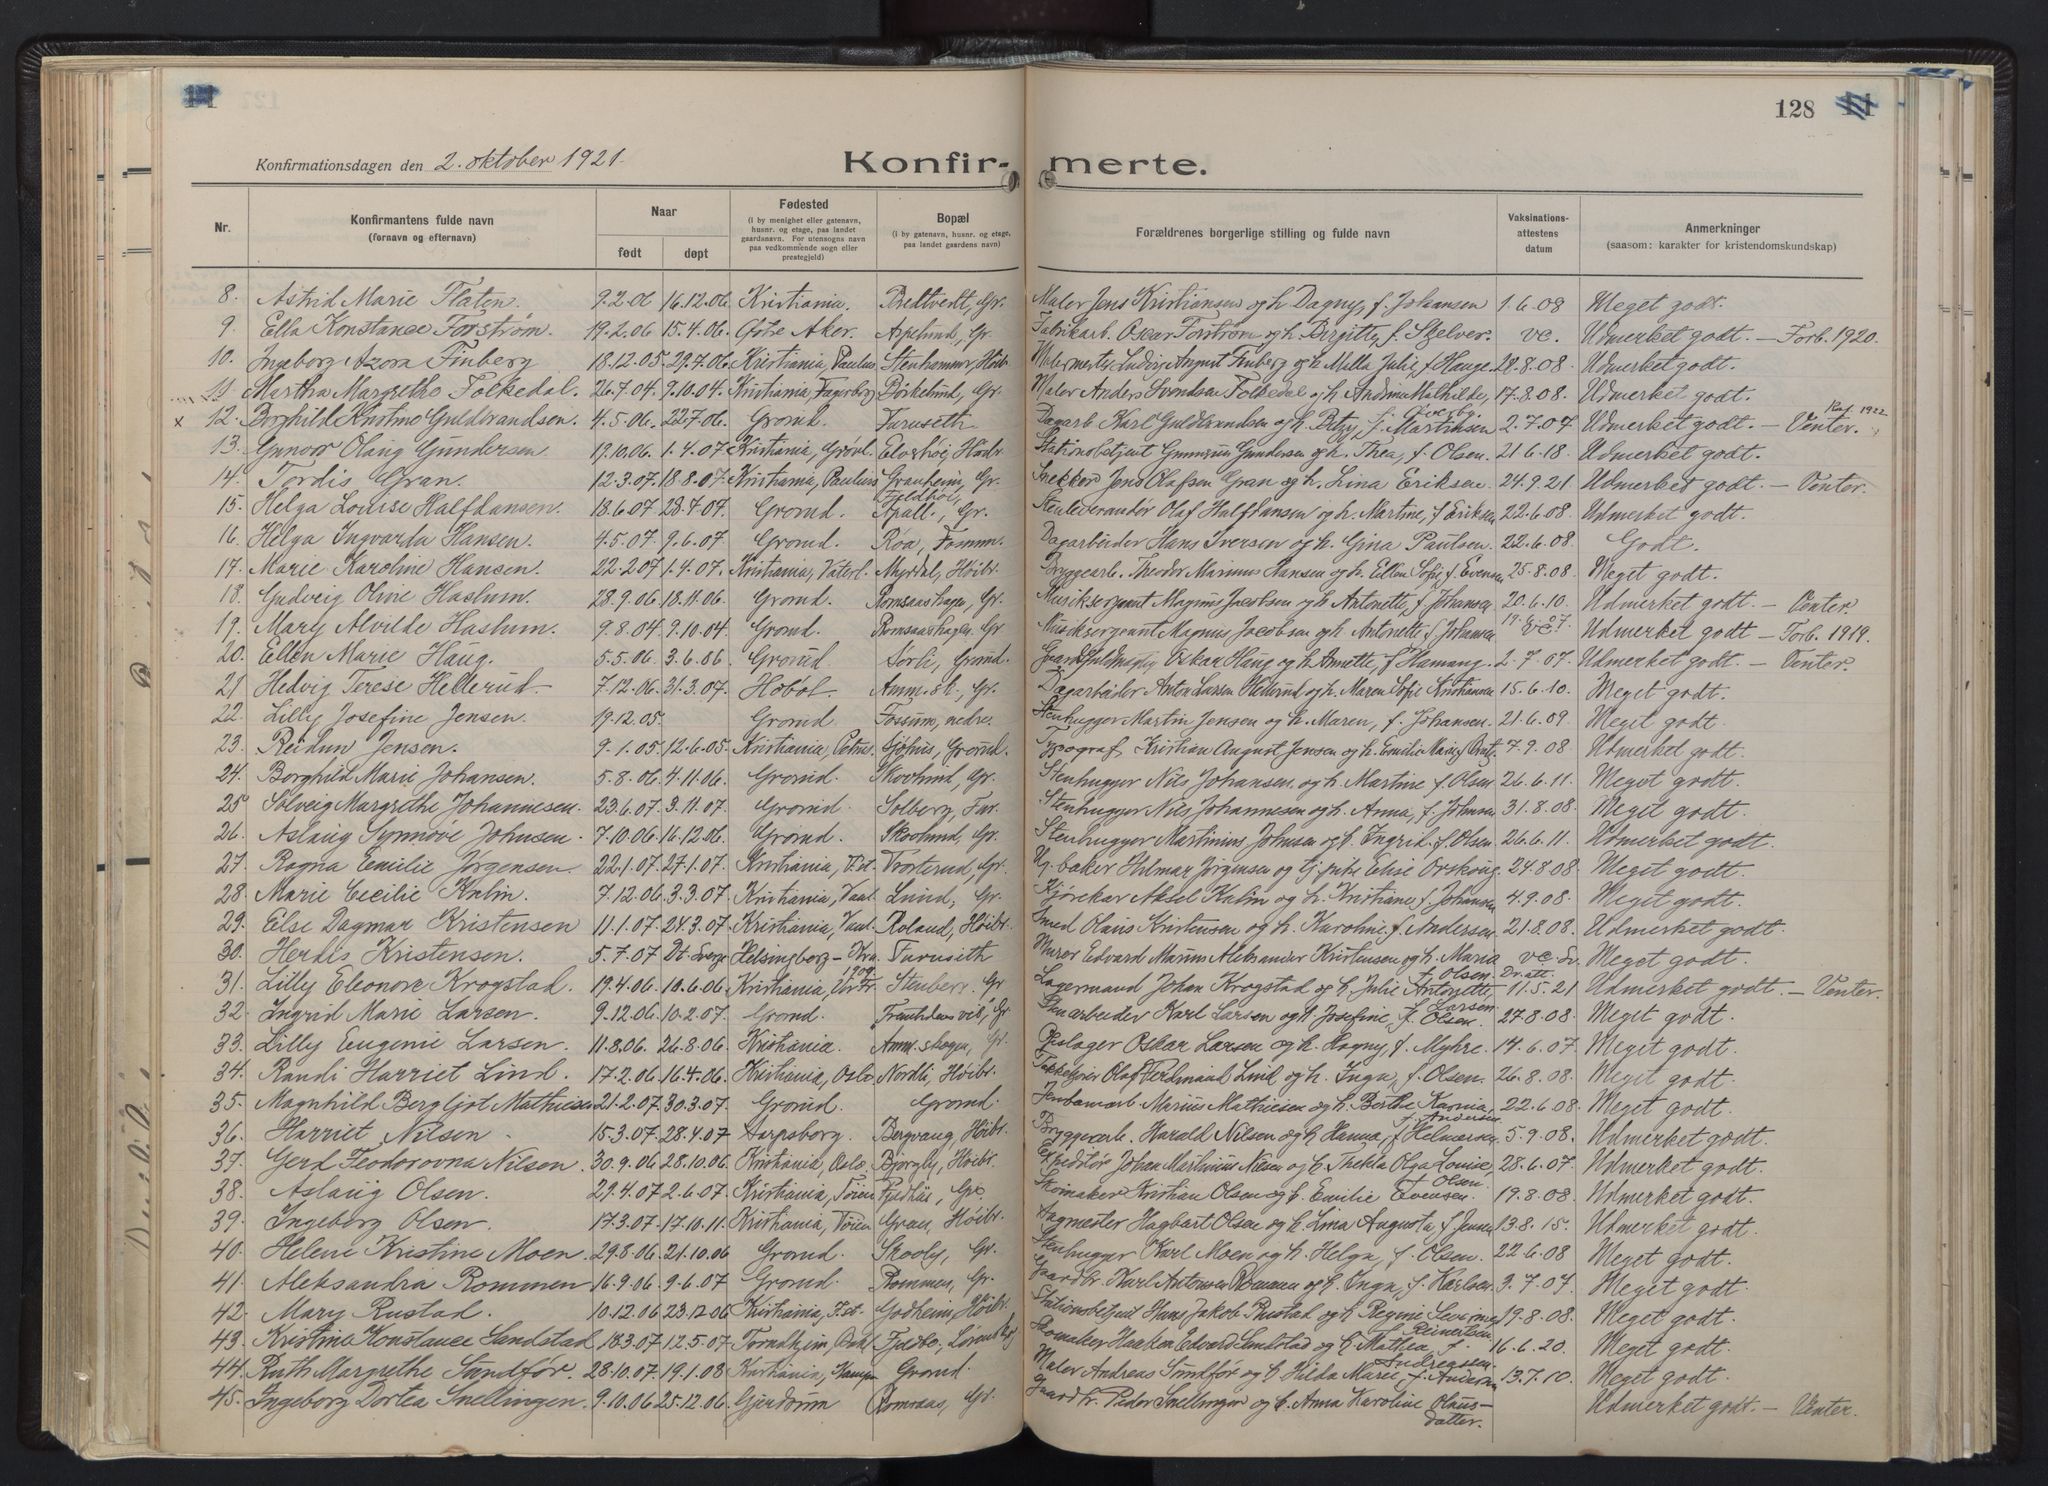 128
Konfirmationsdagen den 2. oktober 1921.
Konfir- merte.
Nr.
Konfirmantens fulde navn
(fornavn og efternavn)
Naar
født
døpt
Fødested
(i by menighet eller gatenavn,
husnr. og etage, paa landet
gaardsnavn. For utensogns navn
paa vedkommende sogn eller
prestegjeld)
Bopæl
(i by gatenavn, husnr. og etage,
paa landet gaardens navn)
Forældrenes borgerlige stilling og fulde navn
Vaksinations-
attestens
datum
Anmerkninger
(saasom: karakter for kristendomskundskap)
8. Astrid Marie Flaten. 9.2.06 16.12.06. Kristiania. Bredtvedt, Gr. Maler Jens Kristiansen og h. Dagny, f. Johansen 1.6.08 Meget godt.
9. Ella Konstance Forstrøm. 19.2.06 15.4.06. Østre Aker. Gr. Fabrikarb. Oscar Forstrøm og h. Birgitte, f. Skelver. vc. Udmerket godt. – Forb. 1920.
10. Ingeborg Azora Finberg 18.12.05 29.7.06 Kristiania, Paulus Stenhammer, Høibr. Malermester Ludvig August Finberg og h. Milla Julie, f. Hauge 28.8.08. Udmerket godt.
11. Martha Margrethe Folkedal. 26.7.04. 9.10.04. Kristiania, Fagerborg Birkelund, Gr. Maler Anders Svendsen Folkedal og h. Andrine Mathilde, 17.8.08. Udmerket godt.
x 12. Borghild Kristine Guldbrandsen. 4.5.06. 22.7.06. Grorud. Furuseth Dagarb. Karl Guldbrandsen og h. Betzy, f. Martinsen 2.7.07 Udmerket godt. – Venter. 1922
13. Gunvor Olaug Gundersen 19.10.06. 1.4.07 Kristiania, Grønl. Høibr. Stationsbetjent Gunnerius Gundersen og h. Thea, f. Olsen. 21.6.18. Udmerket godt.
14. Tordis Gran. 12.3.07 18.8.07. Kristiania, Paulus Granheim, Gr. Snekker Jens Olafsen Gran og h. Lina Eriksen 24.9.21 Udmerket godt. – Venter.
15. Helga Louise Halfdansen. 18.6.07 28.7.07. Grorud. Fjeldhøi, Gr. Stenleverandør Olaf Halfdansen og h. Martine, f. Eriksen 22.6.08. Udmerket godt.
16. Helga Ingvarda Hansen. 4.5.07. 9.6.07. Grorud. Røa, Dagarbeider Hans Iversen og h. Gina Paulsen. 22.6.08. Godt.
17. Marie Karoline Hansen. 22.2.07 1.4.07. Kristiania, Vaterl. Myrdal, Høibr. Bryggearb. Theodor Marinus Hansen og h. Ellen Sofie f. Evensen 25.8.08. Meget godt.
18. Gudveig Oline Haslum. 28.9.06 18.11.06. Grorud. Romsaashagen, Gr. Musiksergeant Magnus Jacobsen og h. Antonette, f. Johansen 20.6.10. Udmerket godt. – Venter.
19. Mary Alvilde Haslum. 9.8.04. 9.10.04. Grorud. Romsaashagen. Gr Musiksergeant Magnus Jacobsen og h. Antonette f. Johansen vc. Udmerket godt – Forb. 1919.
20. Ellen Marie Haug. 5.5.06. 3.6.06 Grorud Sørli, Grorud. Oskar Haug og h. Annette, f. Hamang. 2.7.07. Udmerket godt. – Venter.
21 Hedvig Terese Hellerud. 7.12.06. 31.3.07 Hobøl. Amm.sk., Gr. Dagarbeider Anton Larsen Hellerud og h. Maren Sofie Kristiansen 15.6.10. Meget godt.
22. Lilly Josefine Jensen. 19.12.05. Grorud Fossum, nedre. Stenhugger Martin Jensen og h. Maren, f. Johansen. 21.6.09. Meget godt
23. Reidun Jensen. 9.1.05 12.6.05. Kristiania, Petrus. Grorud. Typograf Kristian August Jensen og h. Emilie Marie f. 7.9.08. Udmerket godt.
24. Borghild Marie Johansen. 5.8.06 4.11.06. Grorud Skovlund, Gr. Stenhugger Nils Johansen og h. Martine f. Olsen 26.6.11. Meget godt.
25 Solveig Margrethe Johannesen. 23.6.07 3.11.07. Grorud. Solberg, Fur. Stenhugger Nils Johannesen og h. Anna, f. Johnsen 31.8.08. Meget godt.
26. Aslaug Synnøve Johnsen. 7.10.06 16.12.06. Grorud. Skovlund, Gr. Stenhugger Martinius Johnsen og h. Ingrid f. Olsen. 26.6.11. Udmerket godt.
27. Ragna Emilie Jørgensen. 22.1.07 27.1.07. Kristiania, Gr. baker Hilmar Jørgensen og Elise Orskoug 24.8.08. Meget godt.
28. Marie Cecilie Kalin. 7.12.06 3.3.07. Kristiania, Vaal. Lund, Gr. Kjørekar Aksel Kalin og h. Kristiane f. Johansen 4.9.08. Meget godt.
29. Else Dagmar Kristensen 11.1.07 24.3.07 Kristiania, Vaal. Roland, Høibr. Smed Olaus Kristensen og h. Karoline f. Andersen 21.8.08. Udmerket godt.
30. Herdis Kristensen. 5.7.07 Helsingborg – Kra. 1909. Furuseth Murer Edvard Marius Aleksander Kristensen og h. Maria f. Olsen. vc Meget godt.
31. Lilly Eleonore Krogstad. 19.4.06 10.6.06 Kristiania, Stenberg. Gr Lagermand Johan Krogstad og h. Julie Antonette, f. Larsen 11.5.21 Udmerket godt. – Venter.
32. Ingrid Marie Larsen. 9.12.06 10.2.07. Grorud. Fremtidens vei, Gr Stenarbeider Karl Larsen og h. Josefine, f. Olsen. 27.8.08. Meget godt.
33. Lilly Eugenie Larsen. 11.8.06. 26.8.06 Kristiania. Gr. Oskar Larsen og h. Dagny, f. Myhre. 14.6.07. Meget godt.
34. Randi Harriet Lind. 17.2.06 16.4.06. Kristiania, Oslo Nordli, Høibr. Olaf Ferdinand Lind og h. Inga, f. Olsen. 26.8.08. Meget godt.
35. Magnhild Bergljot Mathiesen 21.2.07 30.3.07. Grorud. Grorud. Jernbanearb. Marius Mathiesen og h. Berthe f. Andersen 22.6.08. Meget godt.
36. Harriet Nilsen. 15.3.07 28.4.07 Sarpsborg. Bergvang, Høibr. Bryggearb. Harald Nilsen og h. Hanna, f. Helmersen 5.9.08. Udmerket godt.
37. Gerd Feodorovna Nilsen. 30.9.06 28.10.06. Kristiania, Oslo. Bjørgly, Høibr. Expeditør Johan Martinius Nilsen og h. Thekla Olga Louise, f. Olsen. 28.6.07. Udmerket godt.
38. Aslaug Olsen. 29.4.07 2.6.07. Kristiania, Tøien Gr. Skomaker Kristian Olsen og h. Emilie Evensen. 19.8.08. Udmerket godt.
39. Ingeborg Olsen. 17.3.07. 17.10.11. Kristiania, Tøien Gran, Høibr. Hagbart Olsen og h. Lina Augusta, f. Jensen 13.8.15. Udmerket godt.
40. Helene Kristine Moen. 29.8.06. 21.10.06 Grorud. Skovly, Gr. Stenhugger Karl Moen og h. Helga, f. Olsen. 22.6.08 Meget godt.
41. Aleksandra Rommen 16.9.06. 9.6.07. Grorud. Rommen, Gr. Gaardbr. Karl Antonsen Rommen og h. Inga, f. Karlsen. 9.7.07. Meget godt.
42. Mary Rustad. 10.12.06 23.12.06 Kristiania, Godheim, Høibr. Stationsbetjent Hans Jakob Rustad og h. Regine Severine f. Reinertsen 19.8.08. Meget godt.
43. Kristine Konstance Sandstad 18.3.07. 12.5.07. Trondhjem, Fjeldbo, Lørenskog Skomaker Haaken Edvard Sandstad og h. Mathea, f. Andreassen. 16.6.20. Meget godt.
44. Ruth Margrethe Sundfør. 28.10.07. 19.1.08. Kristiania, Kampen Grorud. Maler Andreas Sundfør og h. Hilda Marie, f. Andersen 13.7.10. Meget godt.
45. Ingeborg Dortea Snellingen. 9.10.06 25.12.06. Gjerdrum Romsaas, Gr. Gaardbr. Peder Snellingen og h. Anna Karoline Olaus-
datter. Udmerket godt. – Venter.